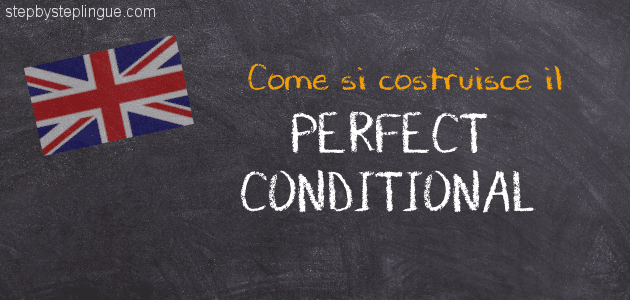 stepbysteplingue.com
Come si costruisce il
PERFECT
CONDITIONAL